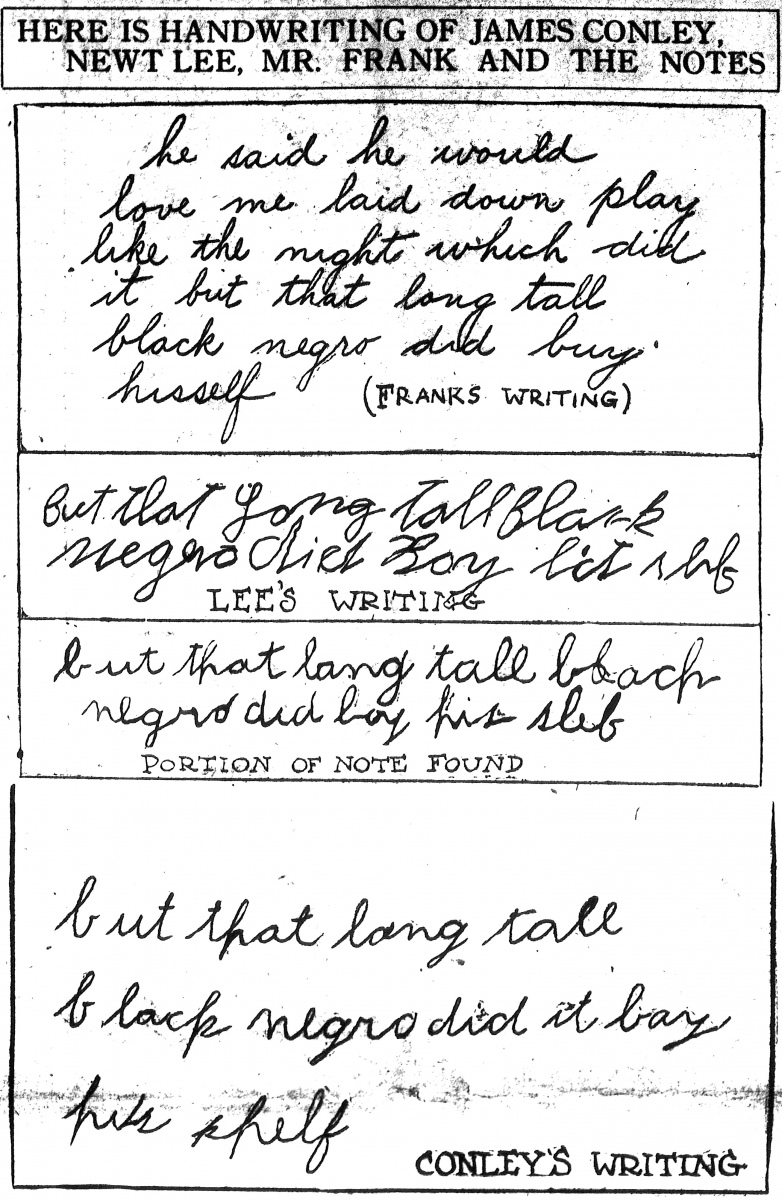 HERE IS HANDWRITING OF JAMES CONLEY,
NEWT LEE, MR. FRANK AND THE NOTES
he said he would
love me laid down play
like the night which did
it but that long tall
black negro did buy
hisself (FRANKS WRITING)
But that Long tall Black
negro did Boy his slef
LEE'S WRITING
but that lang tall black
negro did boy his sleb
PORTION OF NOTE FOUND
but that lang tall
black negro did it bay
his shelf
CONLEY'S WRITING